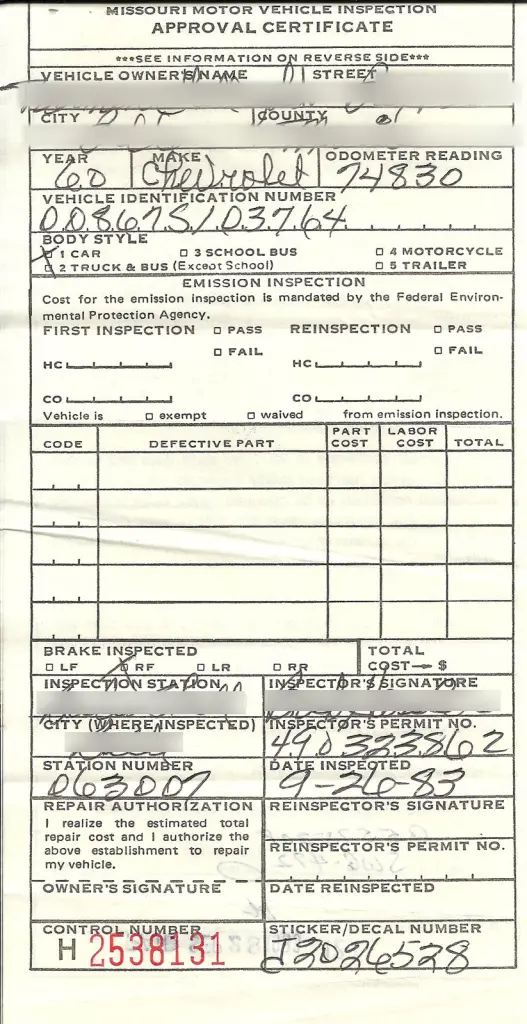 MISSOURI MOTOR VEHICLE INSPECTION
APPROVAL CERTIFICATE
***SEE INFORMATION ON REVERSE SIDE***
VEHICLE OWNER'S NAME STREET
CITY COUNTY
YEAR MAKE ODOMETER READING
60 Chevrolet 74830
VEHICLE IDENTIFICATION NUMBER
00867S103764
BODY STYLE
1 CAR 3 SCHOOL BUS 4 MOTORCYCLE
2 TRUCK & BUS (Except School) 5 TRAILER
EMISSION INSPECTION
Cost for the emission inspection is mandated by the Federal Environ-
mental Protection Agency.
FIRST INSPECTION PASS REINSPECTION PASS
FAIL FAIL
HC HC
CO CO
Vehicle is exempt waived from emission inspection.
CODE DEFECTIVE PART PART COST LABOR COST TOTAL
BRAKE INSPECTED TOTAL
LF RF LR RR COST— $
INSPECTION STATION INSPECTOR'S SIGNATURE
CITY (WHERE INSPECTED) INSPECTOR'S PERMIT NO.
490323862
STATION NUMBER DATE INSPECTED
063007 9-26-83
REPAIR AUTHORIZATION REINSPECTOR'S SIGNATURE
I realize the estimated total
repair cost and I authorize the
above establishment to repair REINSPECTOR'S PERMIT NO.
my vehicle.
OWNER'S SIGNATURE DATE REINSPECTED
CONTROL NUMBER STICKER/DECAL NUMBER
H 2538131 J2026528